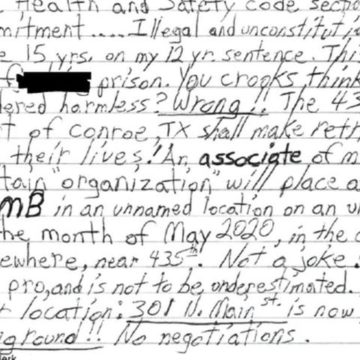 Health and Safety code sectio
mitment.... Illegal and unconstitut
e 15, yrs. on my 12 yr. sentence. Thi
f prison. You crooks think
dered harmless? Wrong!! The 43
t of Conroe, TX shall make retr
their lives! An associate of m
tain "organization" will place a
MB in an unnamed location on an u
the month of May 2020, in the c
ewhere, near 435th. Not a joke!
pro, and is not to be underestimated.
r location: 301 N. Main st. is now
ground!! No negotiations.
lerk